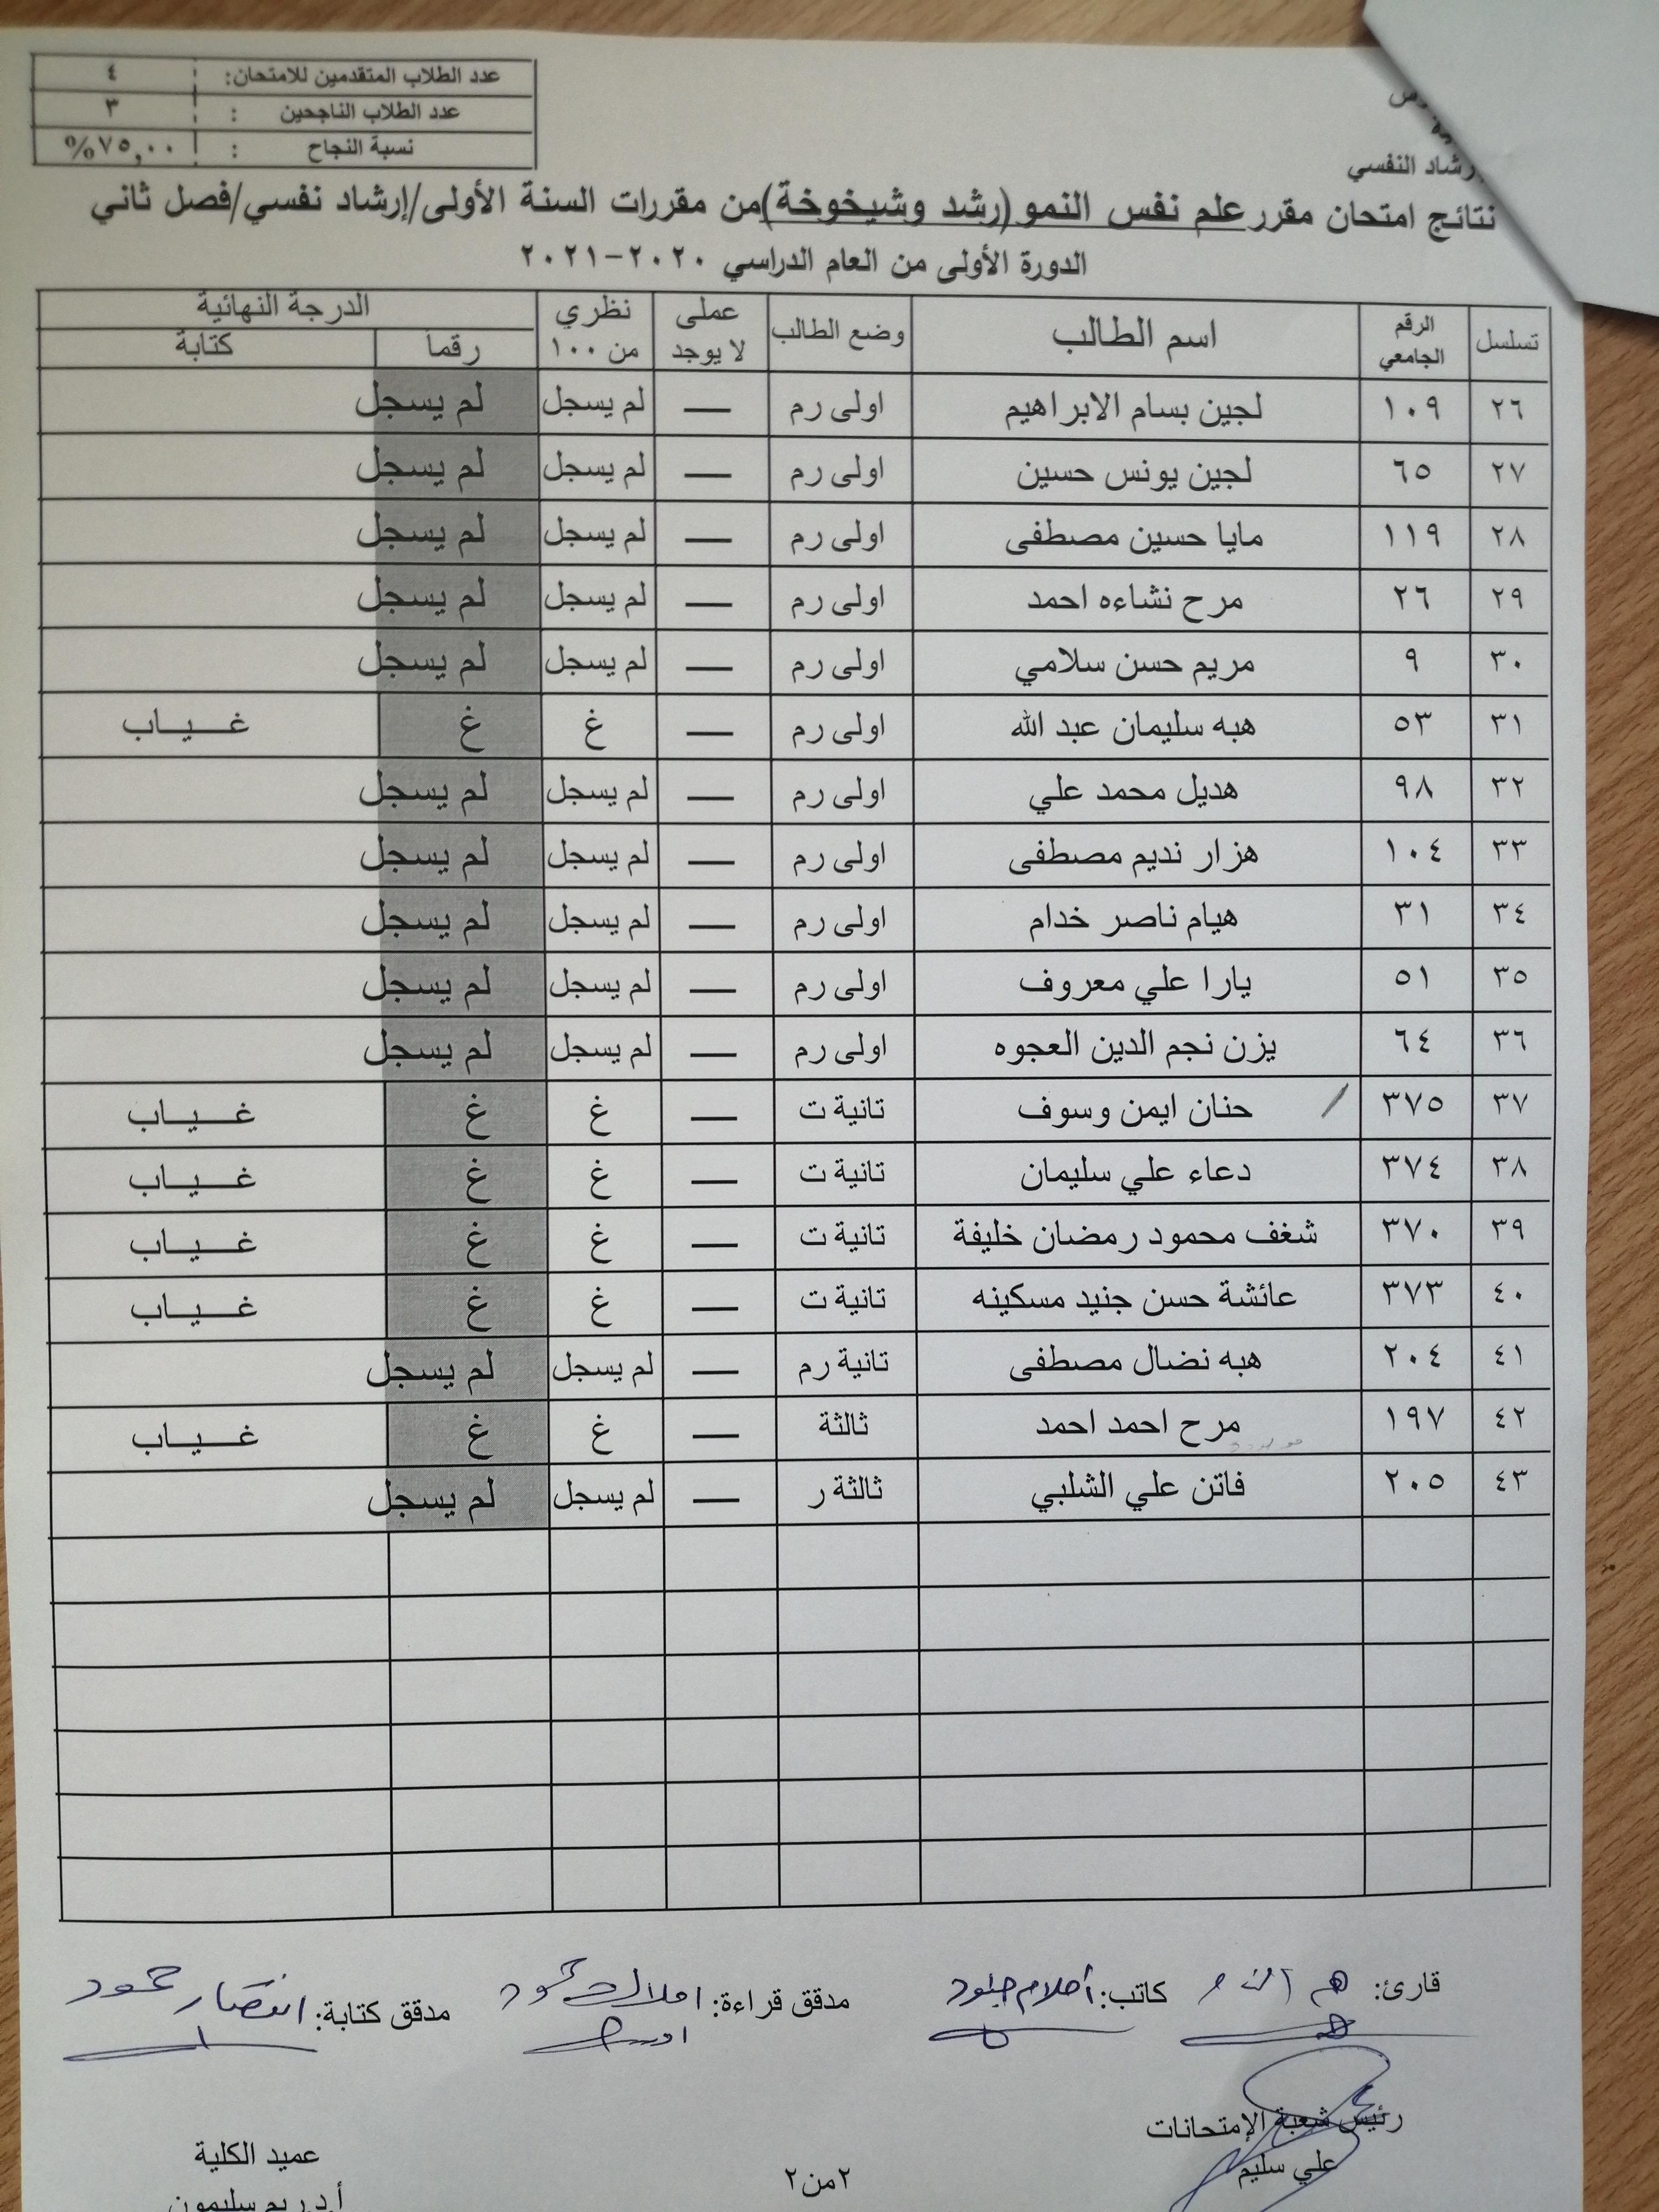 عدد الطلاب المتقدمين للامتحان: ٤
عدد الطلاب الناجحين : ٣
نسبة النجاح : ٧٥,٠٠%
رشاد النفسي
نتائج امتحان مقرر علم نفس النمو (رشد وشيخوخة) من مقررات السنة الأولى/إرشاد نفسي/فصل ثاني
الدورة الأولى من العام الدراسي ٢٠٢٠-٢٠٢١
تسلسل الرقم الجامعي اسم الطالب وضع الطالب عملي لا يوجد نظري من ١٠٠ الدرجة النهائية رقماً كتابة
٢٦ ١٠٩ لجين بسام الابراهيم اولى رم — لم يسجل لم يسجل
٢٧ ٦٥ لجين يونس حسين اولى رم — لم يسجل لم يسجل
٢٨ ١١٩ مايا حسين مصطفى اولى رم — لم يسجل لم يسجل
٢٩ ٢٦ مرح نشاءه احمد اولى رم — لم يسجل لم يسجل
٣٠ ٩ مريم حسن سلامي اولى رم — لم يسجل لم يسجل
٣١ ٥٣ هبه سليمان عبد الله اولى رم — غ غ غـــيـــاب
٣٢ ٩٨ هديل محمد علي اولى رم — لم يسجل لم يسجل
٣٣ ١٠٤ هزار نديم مصطفى اولى رم — لم يسجل لم يسجل
٣٤ ٣١ هيام ناصر خدام اولى رم — لم يسجل لم يسجل
٣٥ ٥١ يارا علي معروف اولى رم — لم يسجل لم يسجل
٣٦ ٦٤ يزن نجم الدين العجوه اولى رم — لم يسجل لم يسجل
٣٧ ٣٧٥ حنان ايمن وسوف تانية ت — غ غ غـــيـــاب
٣٨ ٣٧٤ دعاء علي سليمان تانية ت — غ غ غـــيـــاب
٣٩ ٣٧٠ شغف محمود رمضان خليفة تانية ت — غ غ غـــيـــاب
٤٠ ٣٧٣ عائشة حسن جنيد مسكينه تانية ت — غ غ غـــيـــاب
٤١ ٢٠٤ هبه نضال مصطفى تانية رم — لم يسجل لم يسجل
٤٢ ١٩٧ مرح احمد احمد ثالثة — غ غ غـــيـــاب
٤٣ ٢٠٥ فاتن علي الشلبي ثالثة ر — لم يسجل لم يسجل
قارئ: كاتب: أحلام مدقق قراءة: مدقق كتابة: انتصار حمود
رئيس شعبة الإمتحانات
علي سليم
٢من٢
عميد الكلية
أ.د.ريم سليمون